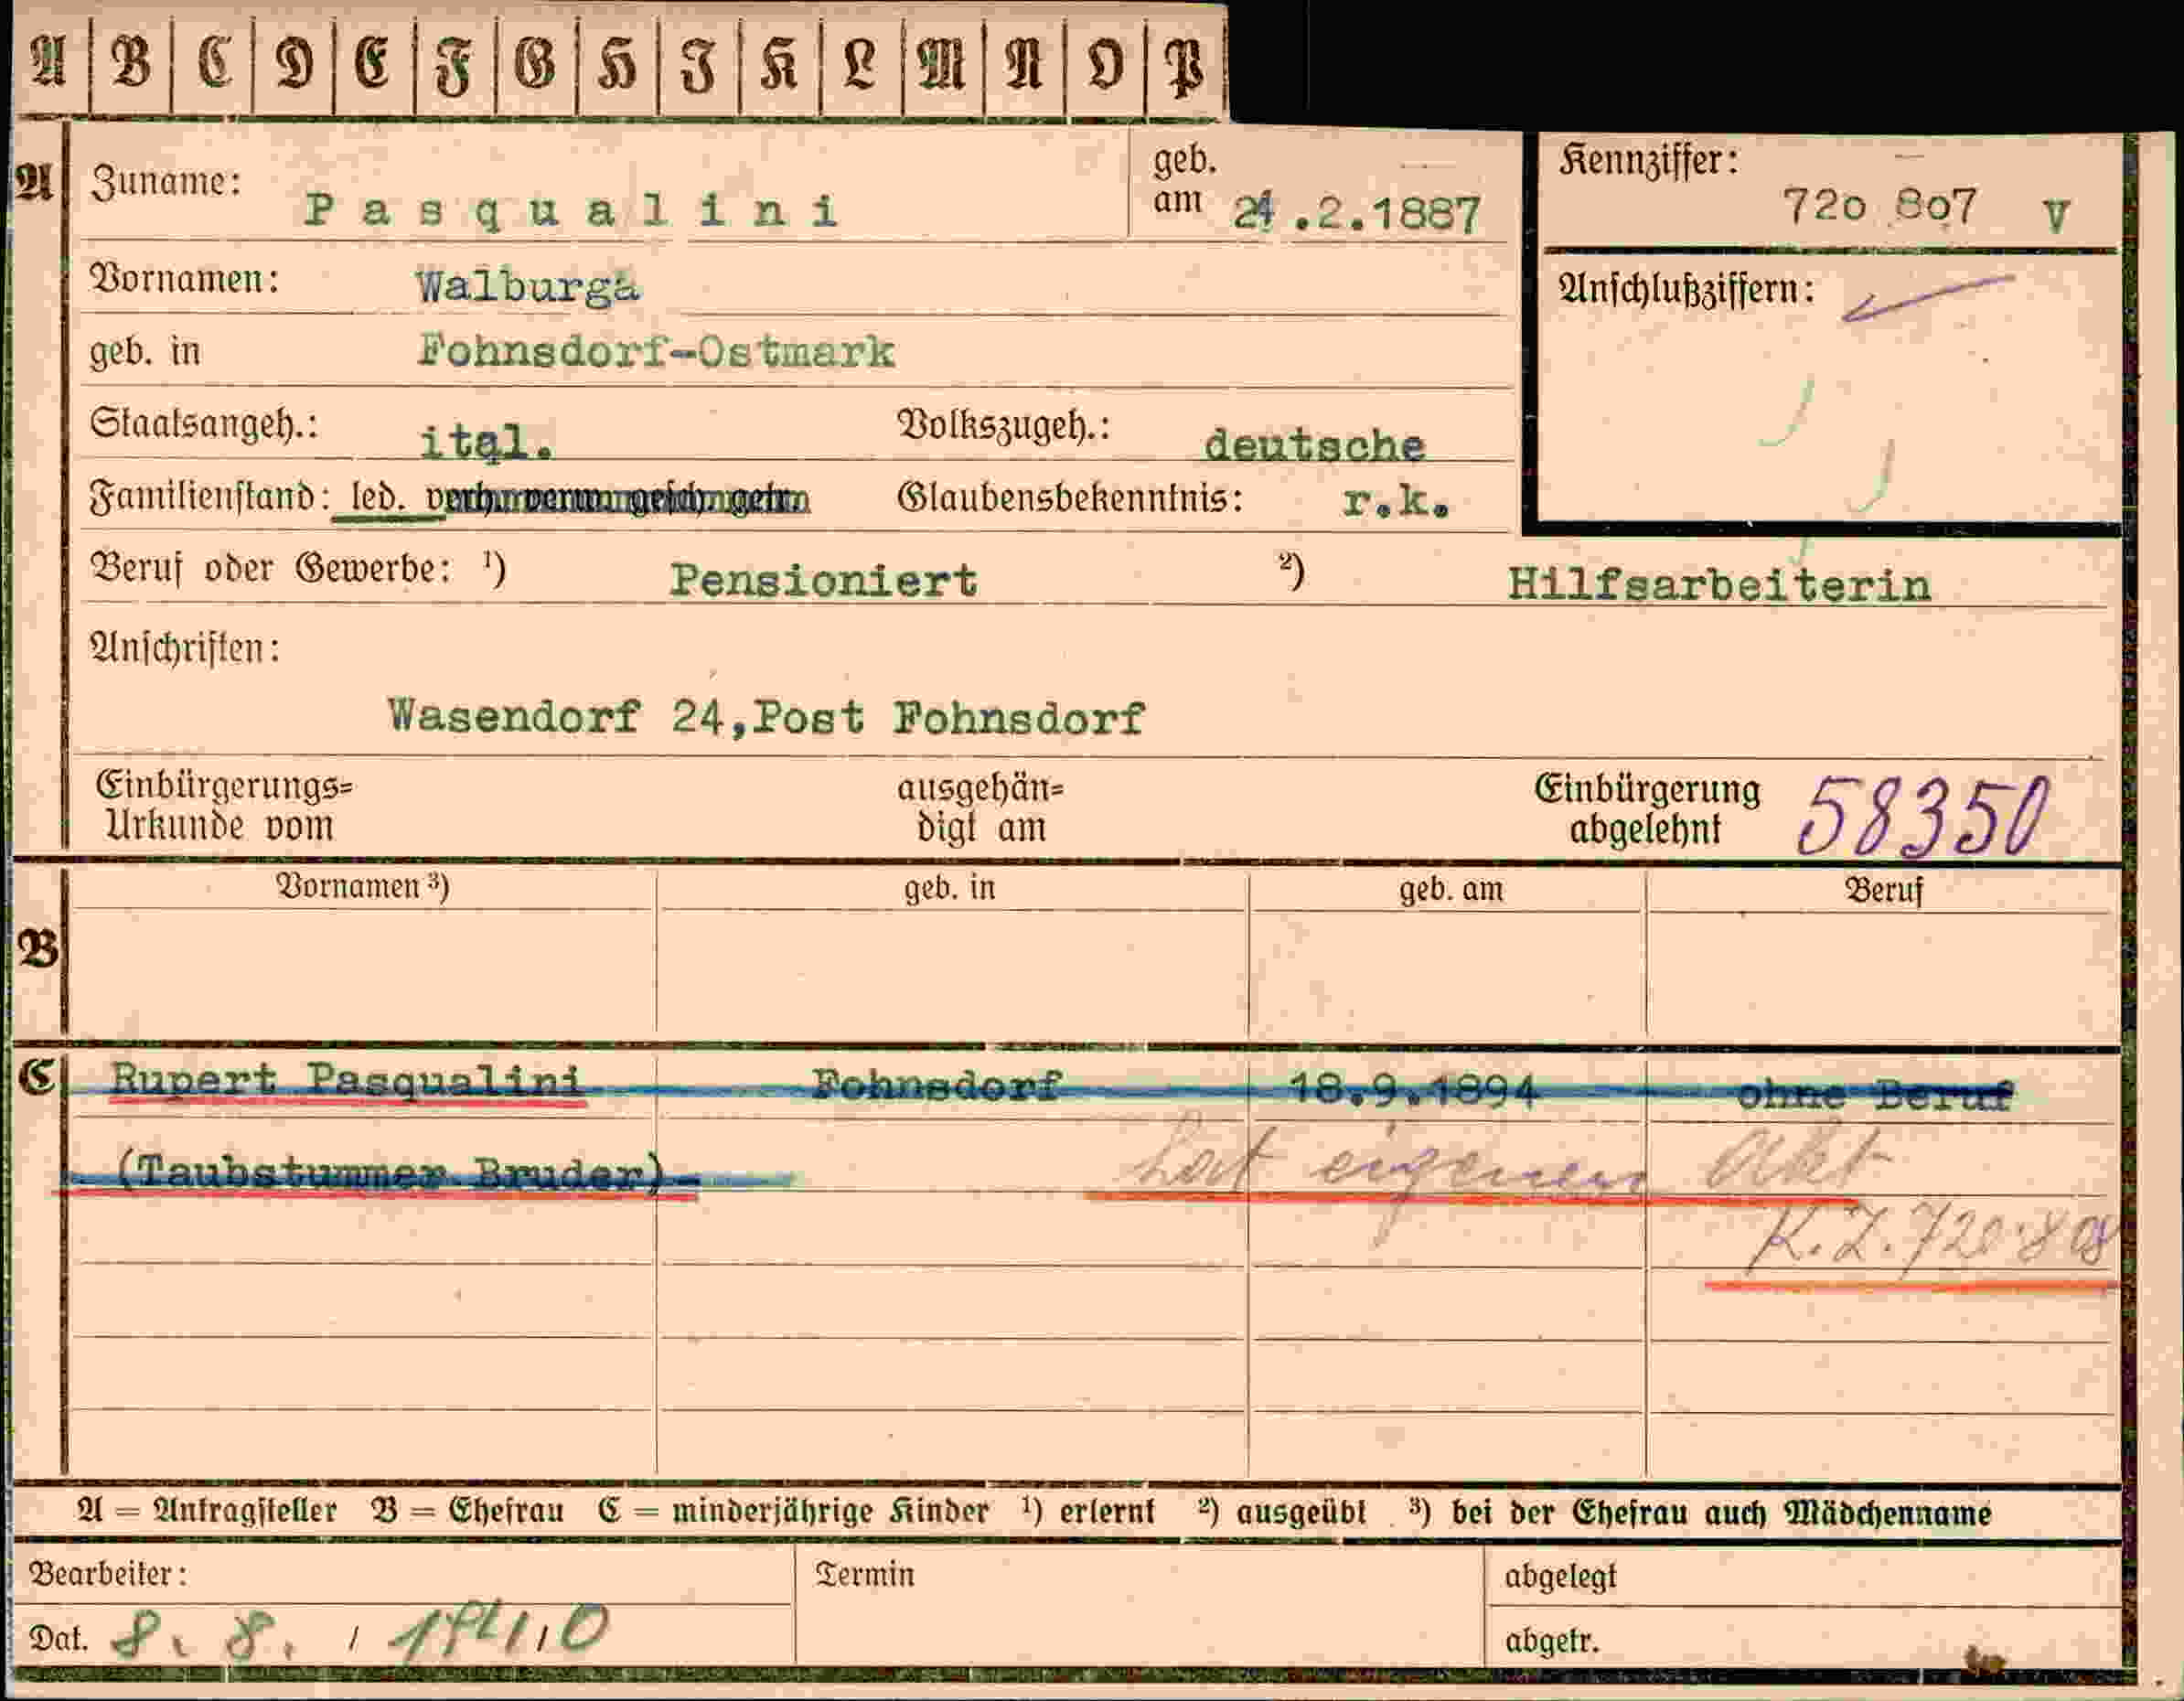 A B C D E F G H I K L M N O P
A Zuname: Pasqualini geb. am 24.2.1887 Kennziffer: 720 807 V
Vornamen: Walburga Anschlußziffern:
geb. in Fohnsdorf-Ostmark
Staatsangeh.: ital. Volkszugeh.: deutsche
Familienstand: led. verh. verw. gesch. getr. Glaubensbekenntnis: r.k.
Beruf oder Gewerbe: 1) Pensioniert 2) Hilfsarbeiterin
Anschriften:
Wasendorf 24,Post Fohnsdorf
Einbürgerungs= ausgehän= Einbürgerung 58350
Urkunde vom digt am abgelehnt
Vornamen 3) geb. in geb. am Beruf
B
C Rupert Pasqualini Fohnsdorf 18.9.1894 ohne Beruf
(Taubstummer Bruder) hat eigenen Akt
K.Z. 720808
A = Antragsteller B = Ehefrau C = minderjährige Kinder 1) erlernt 2) ausgeübt 3) bei der Ehefrau auch Mädchenname
Bearbeiter: Termin abgelegt
Dat. 8. 8. / 1940 abgetr.